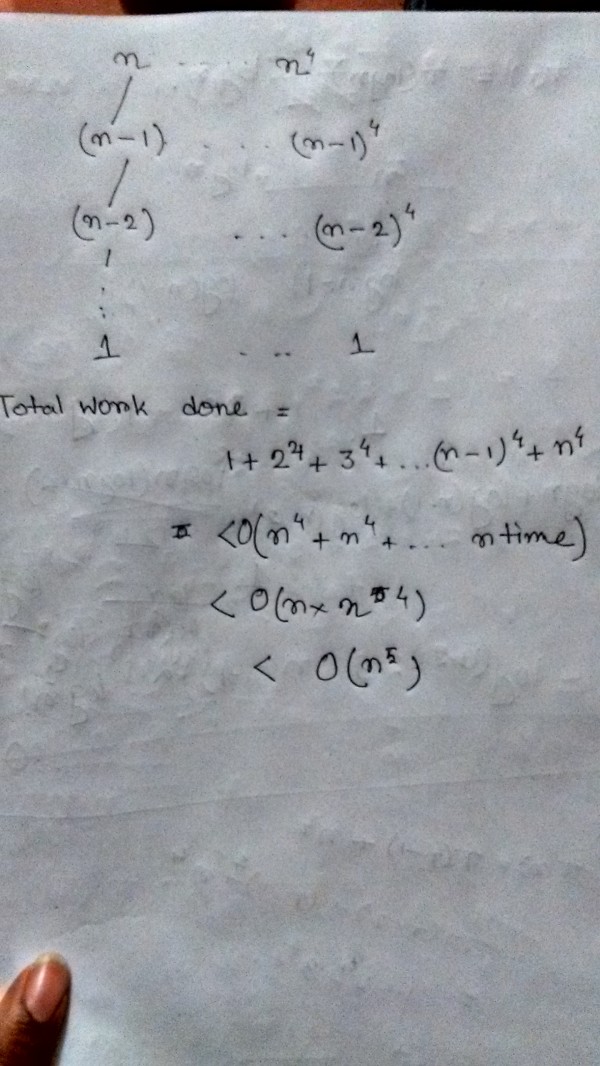 n ..... n⁴
(n-1) ... (n-1)⁴
(n-2) ... (n-2)⁴
1 .... 1
Total work done =
1 + 2⁴ + 3⁴ + ... (n-1)⁴ + n⁴
= <O(n⁴ + n⁴ + .... n time)
< O(n × n⁴)
< O(n⁵)